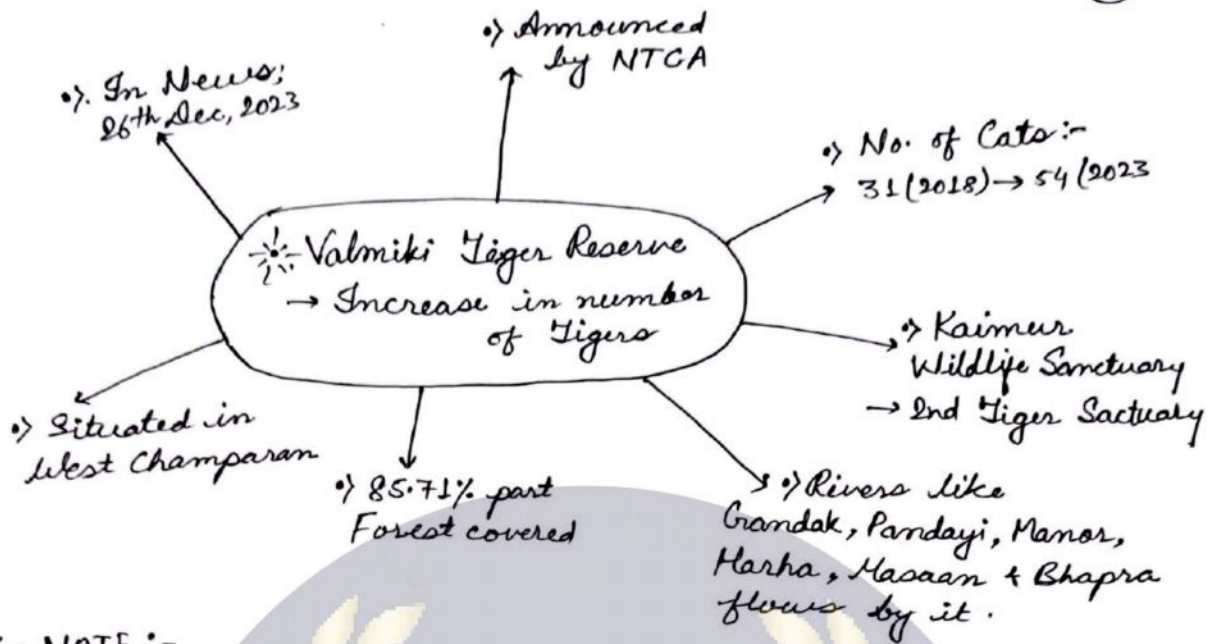 •) Announced
by NTCA
•). In News;
26th Dec, 2023
•) No. of Cats:-
31(2018)→ 54(2023
Valmiki Tiger Reserve
→ Increase in number
of Tigers
•) Kaimur
Wildlife Sanctuary
→ 2nd Tiger Sactuary
•) Situated in
West Champaran
•) 85.71% part
Forest covered
•) Rivers like
Gandak, Pandayi, Manor,
Harha, Masaan & Bhapra
flows by it.
NOTE :-